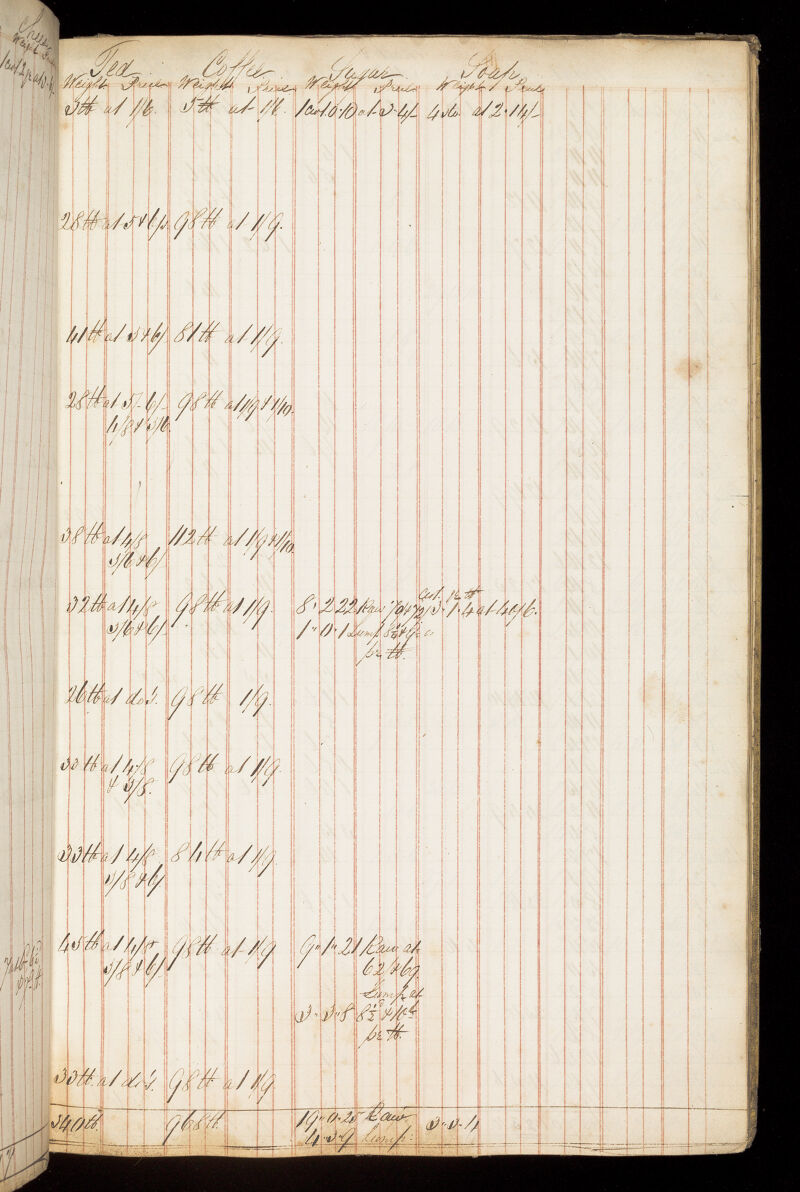 Tea Coffee Sugar Soap
Weight Price Weight Price Weight Price Weight Price
3lb at 1/6. 5lb at 1/1. 1 cwt 0.10 at 3.4/- 4 do at 2.14/-
28lb at 5 & 6/s 98lb at 1/9.
41lb at 5 & 6/ 81lb at 1/9.
28lb at 5/- 6/- 98lb at 1/9 & 1/10.
4/8 & 5/6.
38lb at 4/8 112lb at 1/9 & 1/10.
5/6 & 6/
Cwt. qr lb
32lb at 4/8 98lb at 1/9. 8" 2 22 Raw 3.1.4 at 40/6.
5/6 & 6/ 1" 0.1 Lump 8½ &
pr lb.
26lb at do's. 98lb 1/9.
33lb at 4/8 98lb at 1/9.
& 5/8.
33lb at 4/8 84lb at 1/9.
5/8 & 6/
45lb at 4/8 98lb at 1/9 9" 1" 21 Raw at
5/8 & 6/ 62 & 69
Lump at
3" 3" 8 8½ &
pr lb.
33lb at do's. 98lb at 1/9
340lb. 968lb. 19" 0" 25 Raw 3" 3.4
4.3.9 Lump.